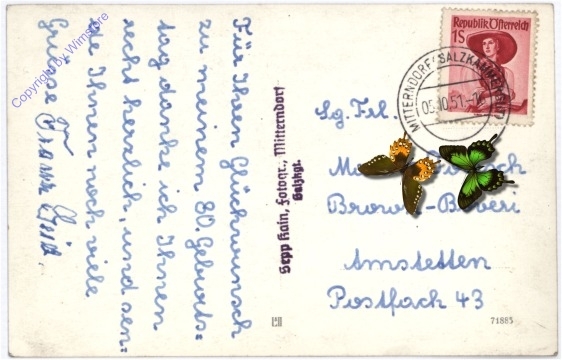 Für Ihren Glückwunsch
zu meinem 80. Geburts=
tag danke ich Ihnen
recht herzlich, und sen=
de Ihnen noch viele
Grüsse
Sepp Kain, Fotogr., Mitterndorf
Salzkgt.
Republik Österreich
1S
MITTERNDORF/SALZKAMMERGUT
05.10.51
Sg. Frl.
Brown-Boveri
Amstetten
Postfach 43
71885
Copyright by Wimstore